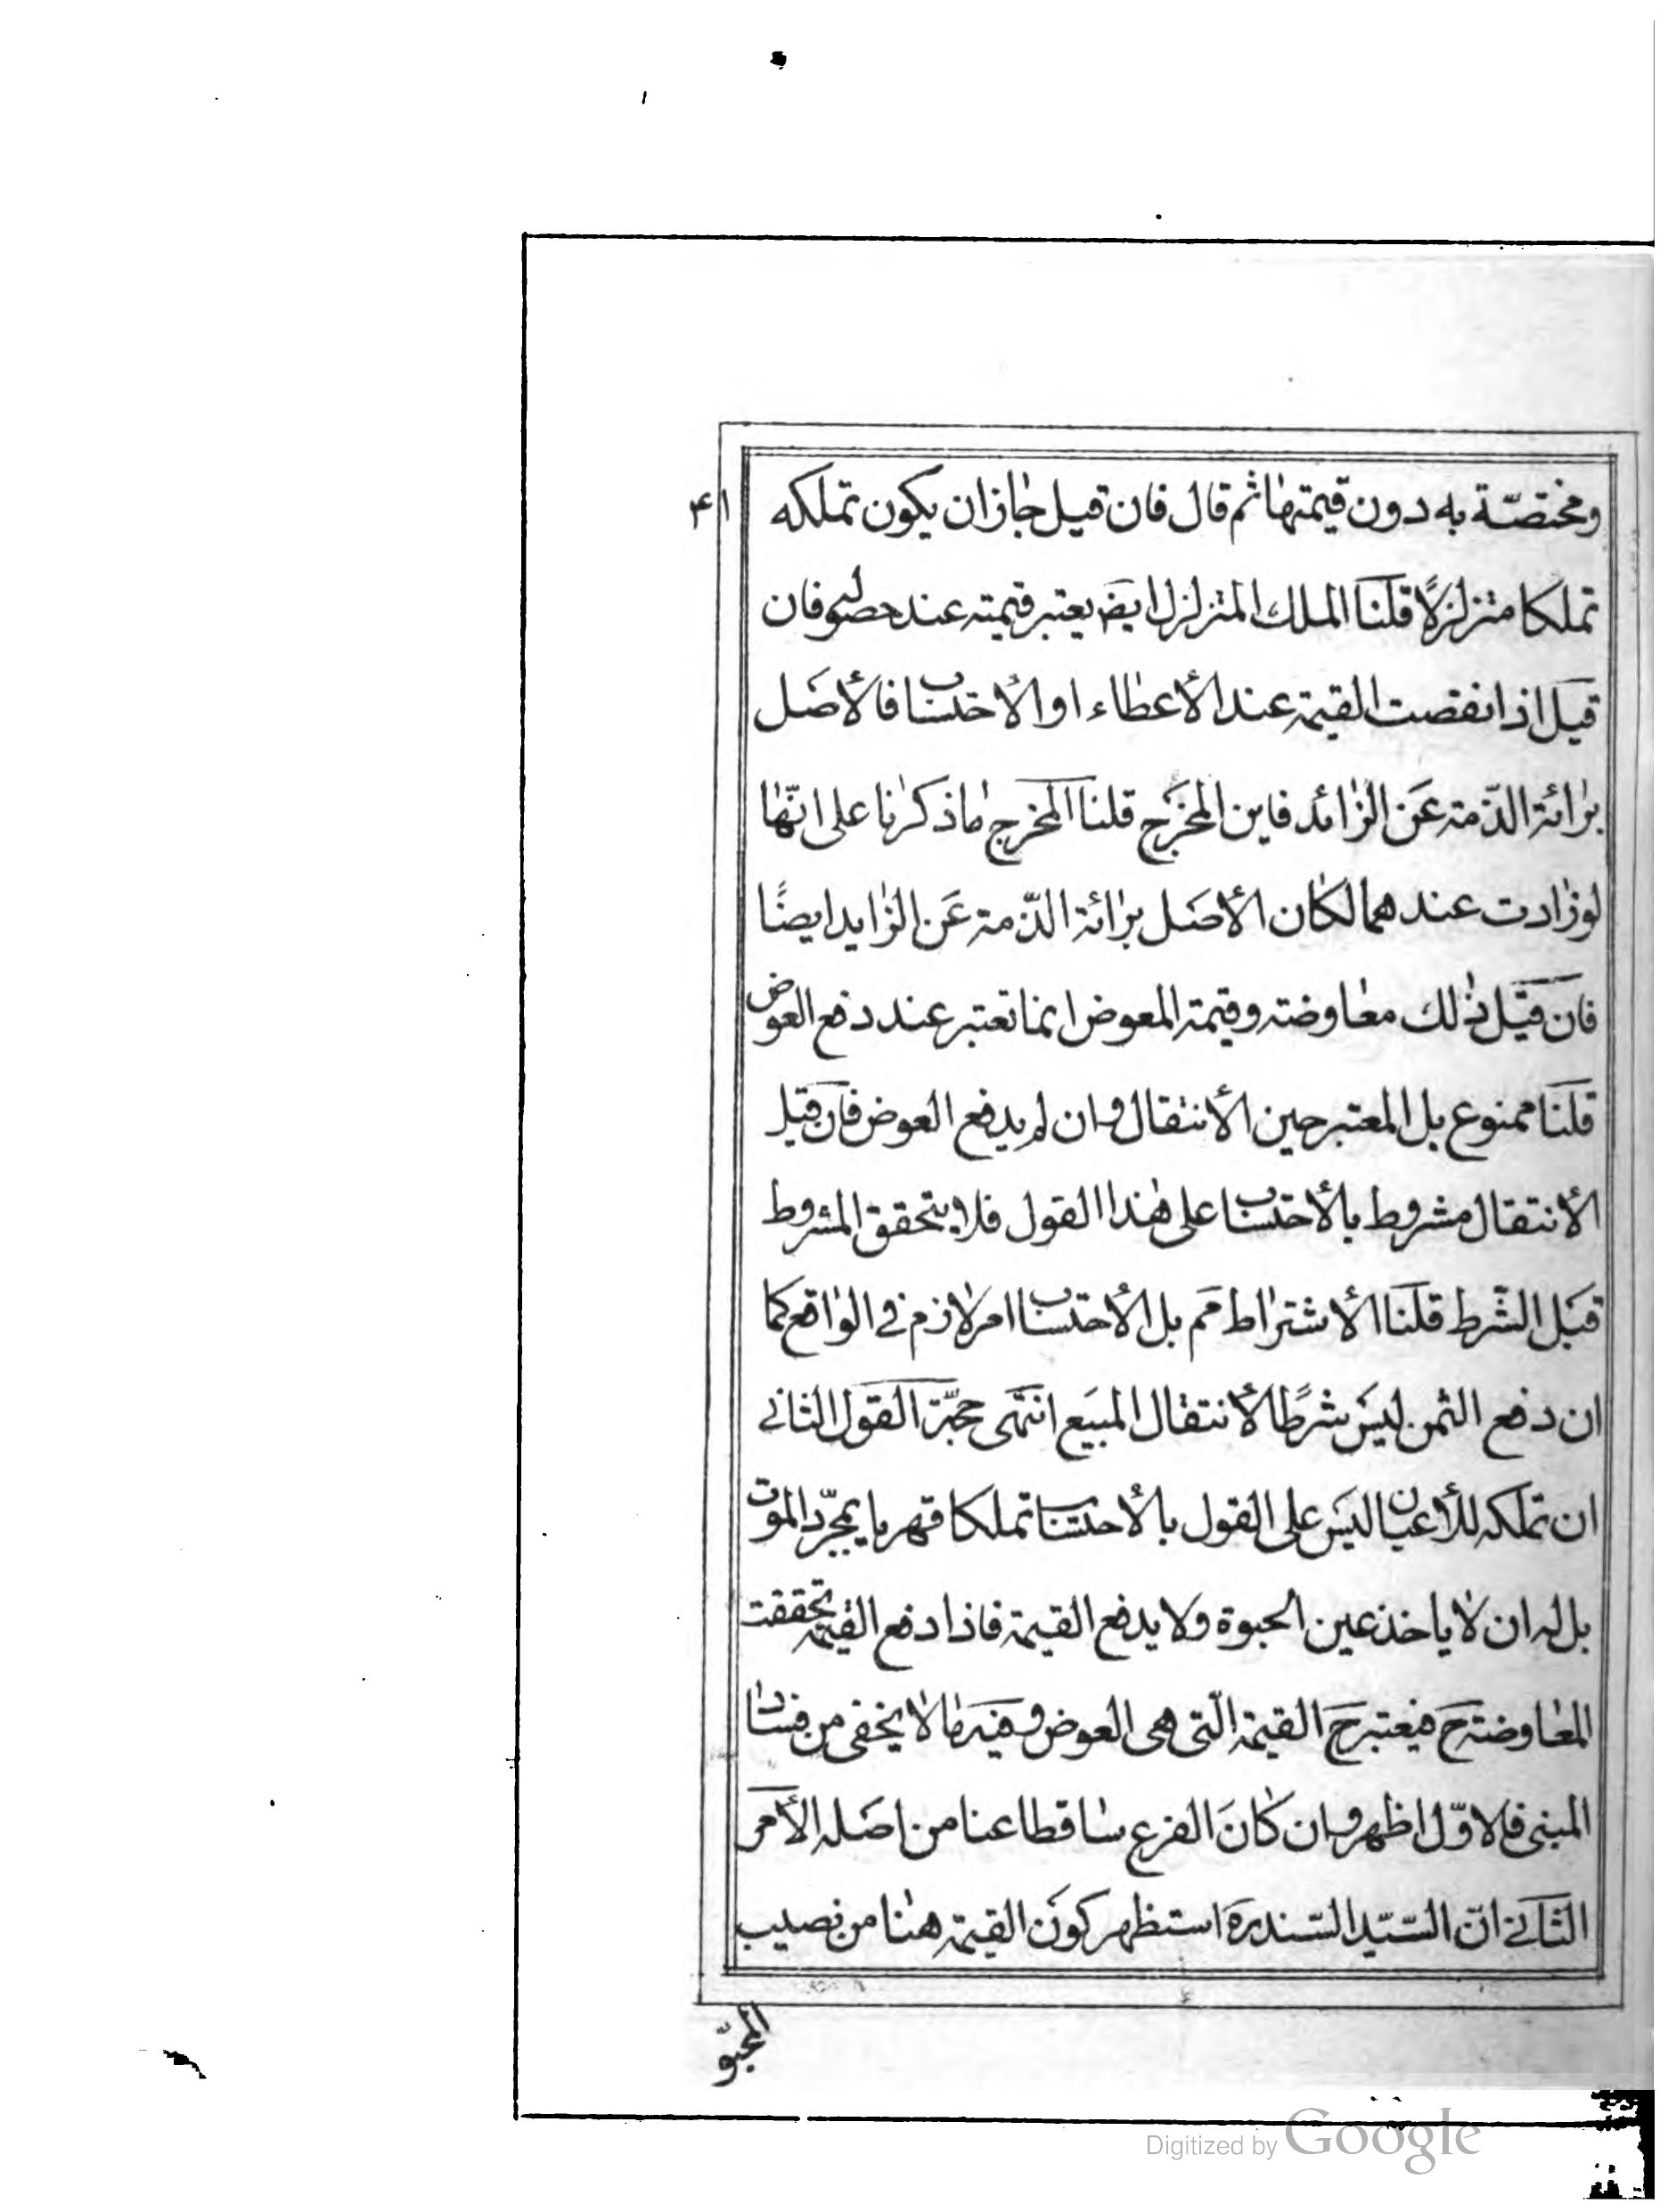 ۴۱
ومختصّة به دون قيمتها ثم قال فان قيل جاز ان يكون تملكه
تملكا متزلزلًا قلنا الملك المتزلزل ايض يعتبر قيمته عند حصوله فان
قيل اذا نقصت القيمة عند الأعطاء او الأحتساب فالأصل
برائة الذّمة عن الزائد فاين المخرج قلنا المخرج ما ذكرنا على انّها
لو زادت عندهما لكان الأصل برائة الذّمة عن الزايد ايضًا
فان قيل ذلك معاوضة وقيمة المعوض انما تعتبر عند دفع العوض
قلنا ممنوع بل المعتبر حين الأنتقال وان لم يدفع العوض فان قيل
الأنتقال مشروط بالأحتساب على هذا القول فلا يتحقق المشروط
قبل الشّرط قلنا الأشتراط مم بل الأحتساب امر لازم في الواقع كما
ان دفع الثمن ليس شرطًا لأنتقال المبيع انتهى حجّة القول الثاني
ان تملكه للأعيان ليس على القول بالأحتساب تملكا قهريا بمجرّد الموت
بل له ان لا ياخذ عين الحبوة ولا يدفع القيمة فاذا دفع القيمة تحققت
المعاوضة ح فيعتبر ح القيمة الّتي هي العوض وفيه ما لا يخفى من فساد
المبنى فالاوّل اظهر وان كان الفرع ساقطا عنا من اصله الأمر
الثاني انّ السّيّد السّند ره استظهر كون القيمة هنا من نصيب
المحبّو
Digitized by Google